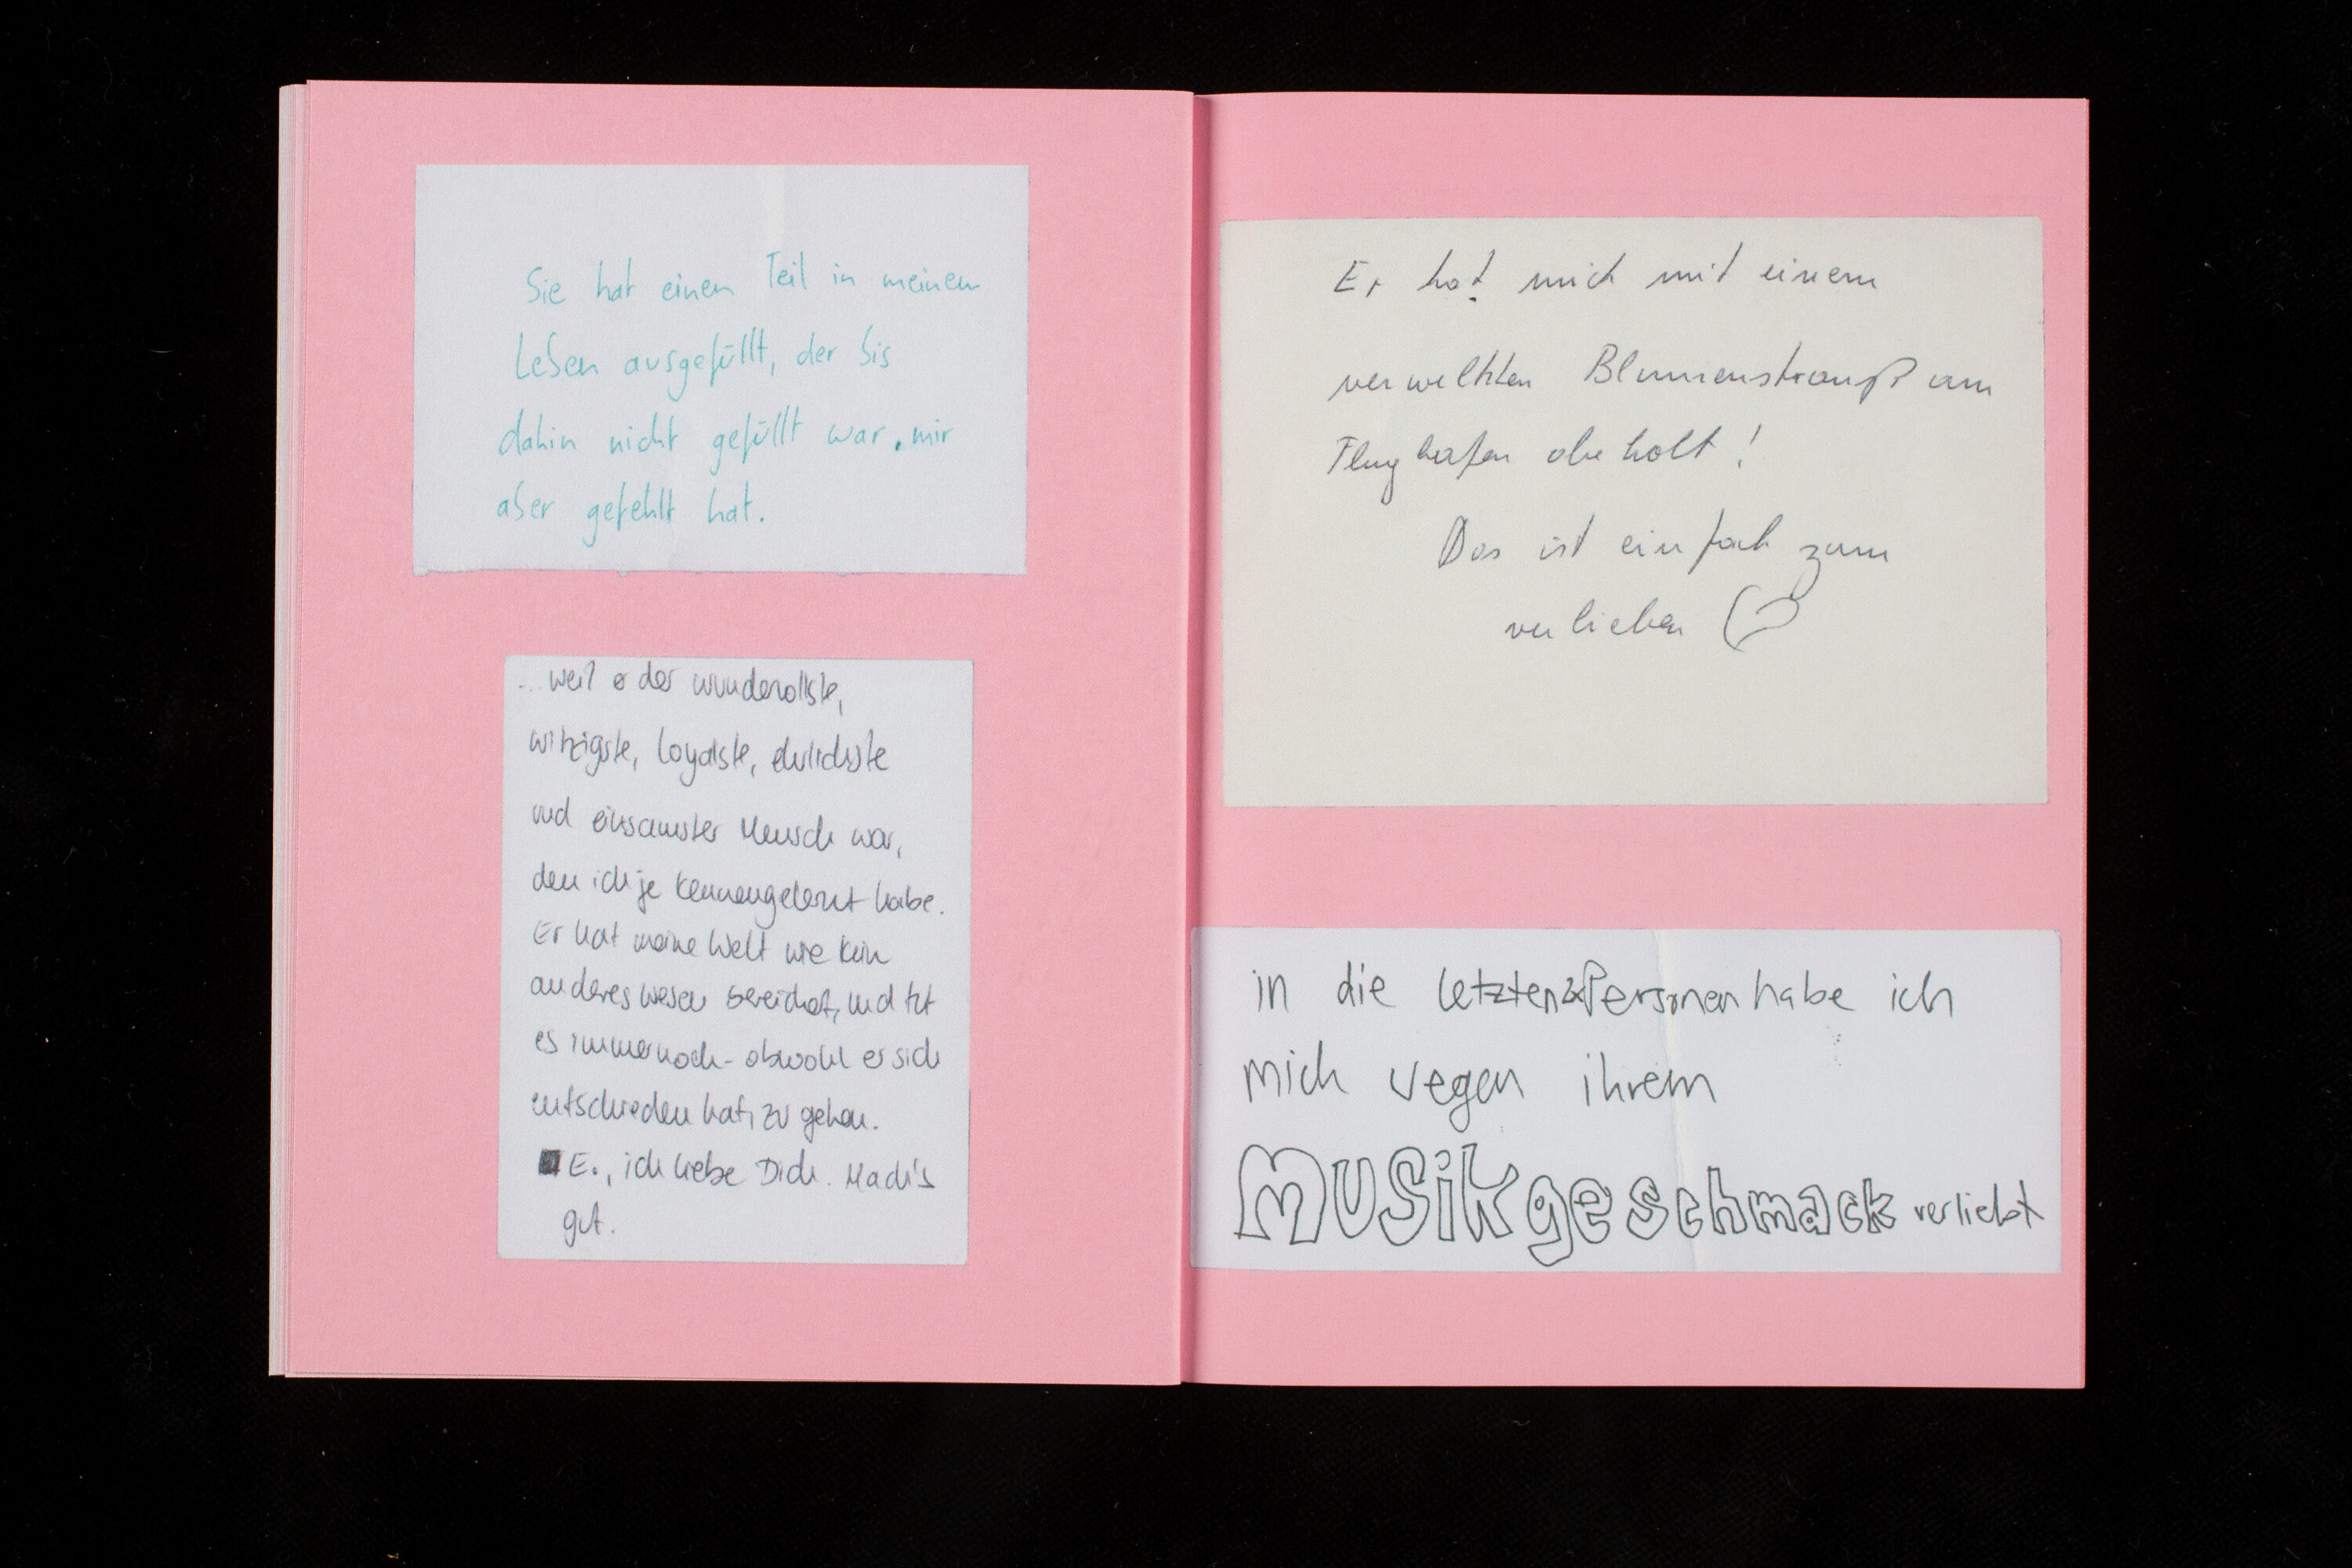 Sie hat einen Teil in meinem
Leben ausgefüllt, der bis
dahin nicht gefüllt war, mir
aber gefehlt hat.
... weil er der wundervollste,
witzigste, loyalste, ehrlichste
und einsamster Mensch war,
den ich je kennengelernt habe.
Er hat meine Welt wie kein
anderes Wesen bereichert, und tut
es immernoch - obwohl er sich
entschieden hat, zu gehen.
E., ich liebe Dich. Mach's
gut.
Er hat mich mit einem
verwelkten Blumenstrauß am
Flughafen abeholt!
Das ist einfach zum
verlieben
in die letzten 2 Personen habe ich
mich wegen ihrem
Musikgeschmack verliebt